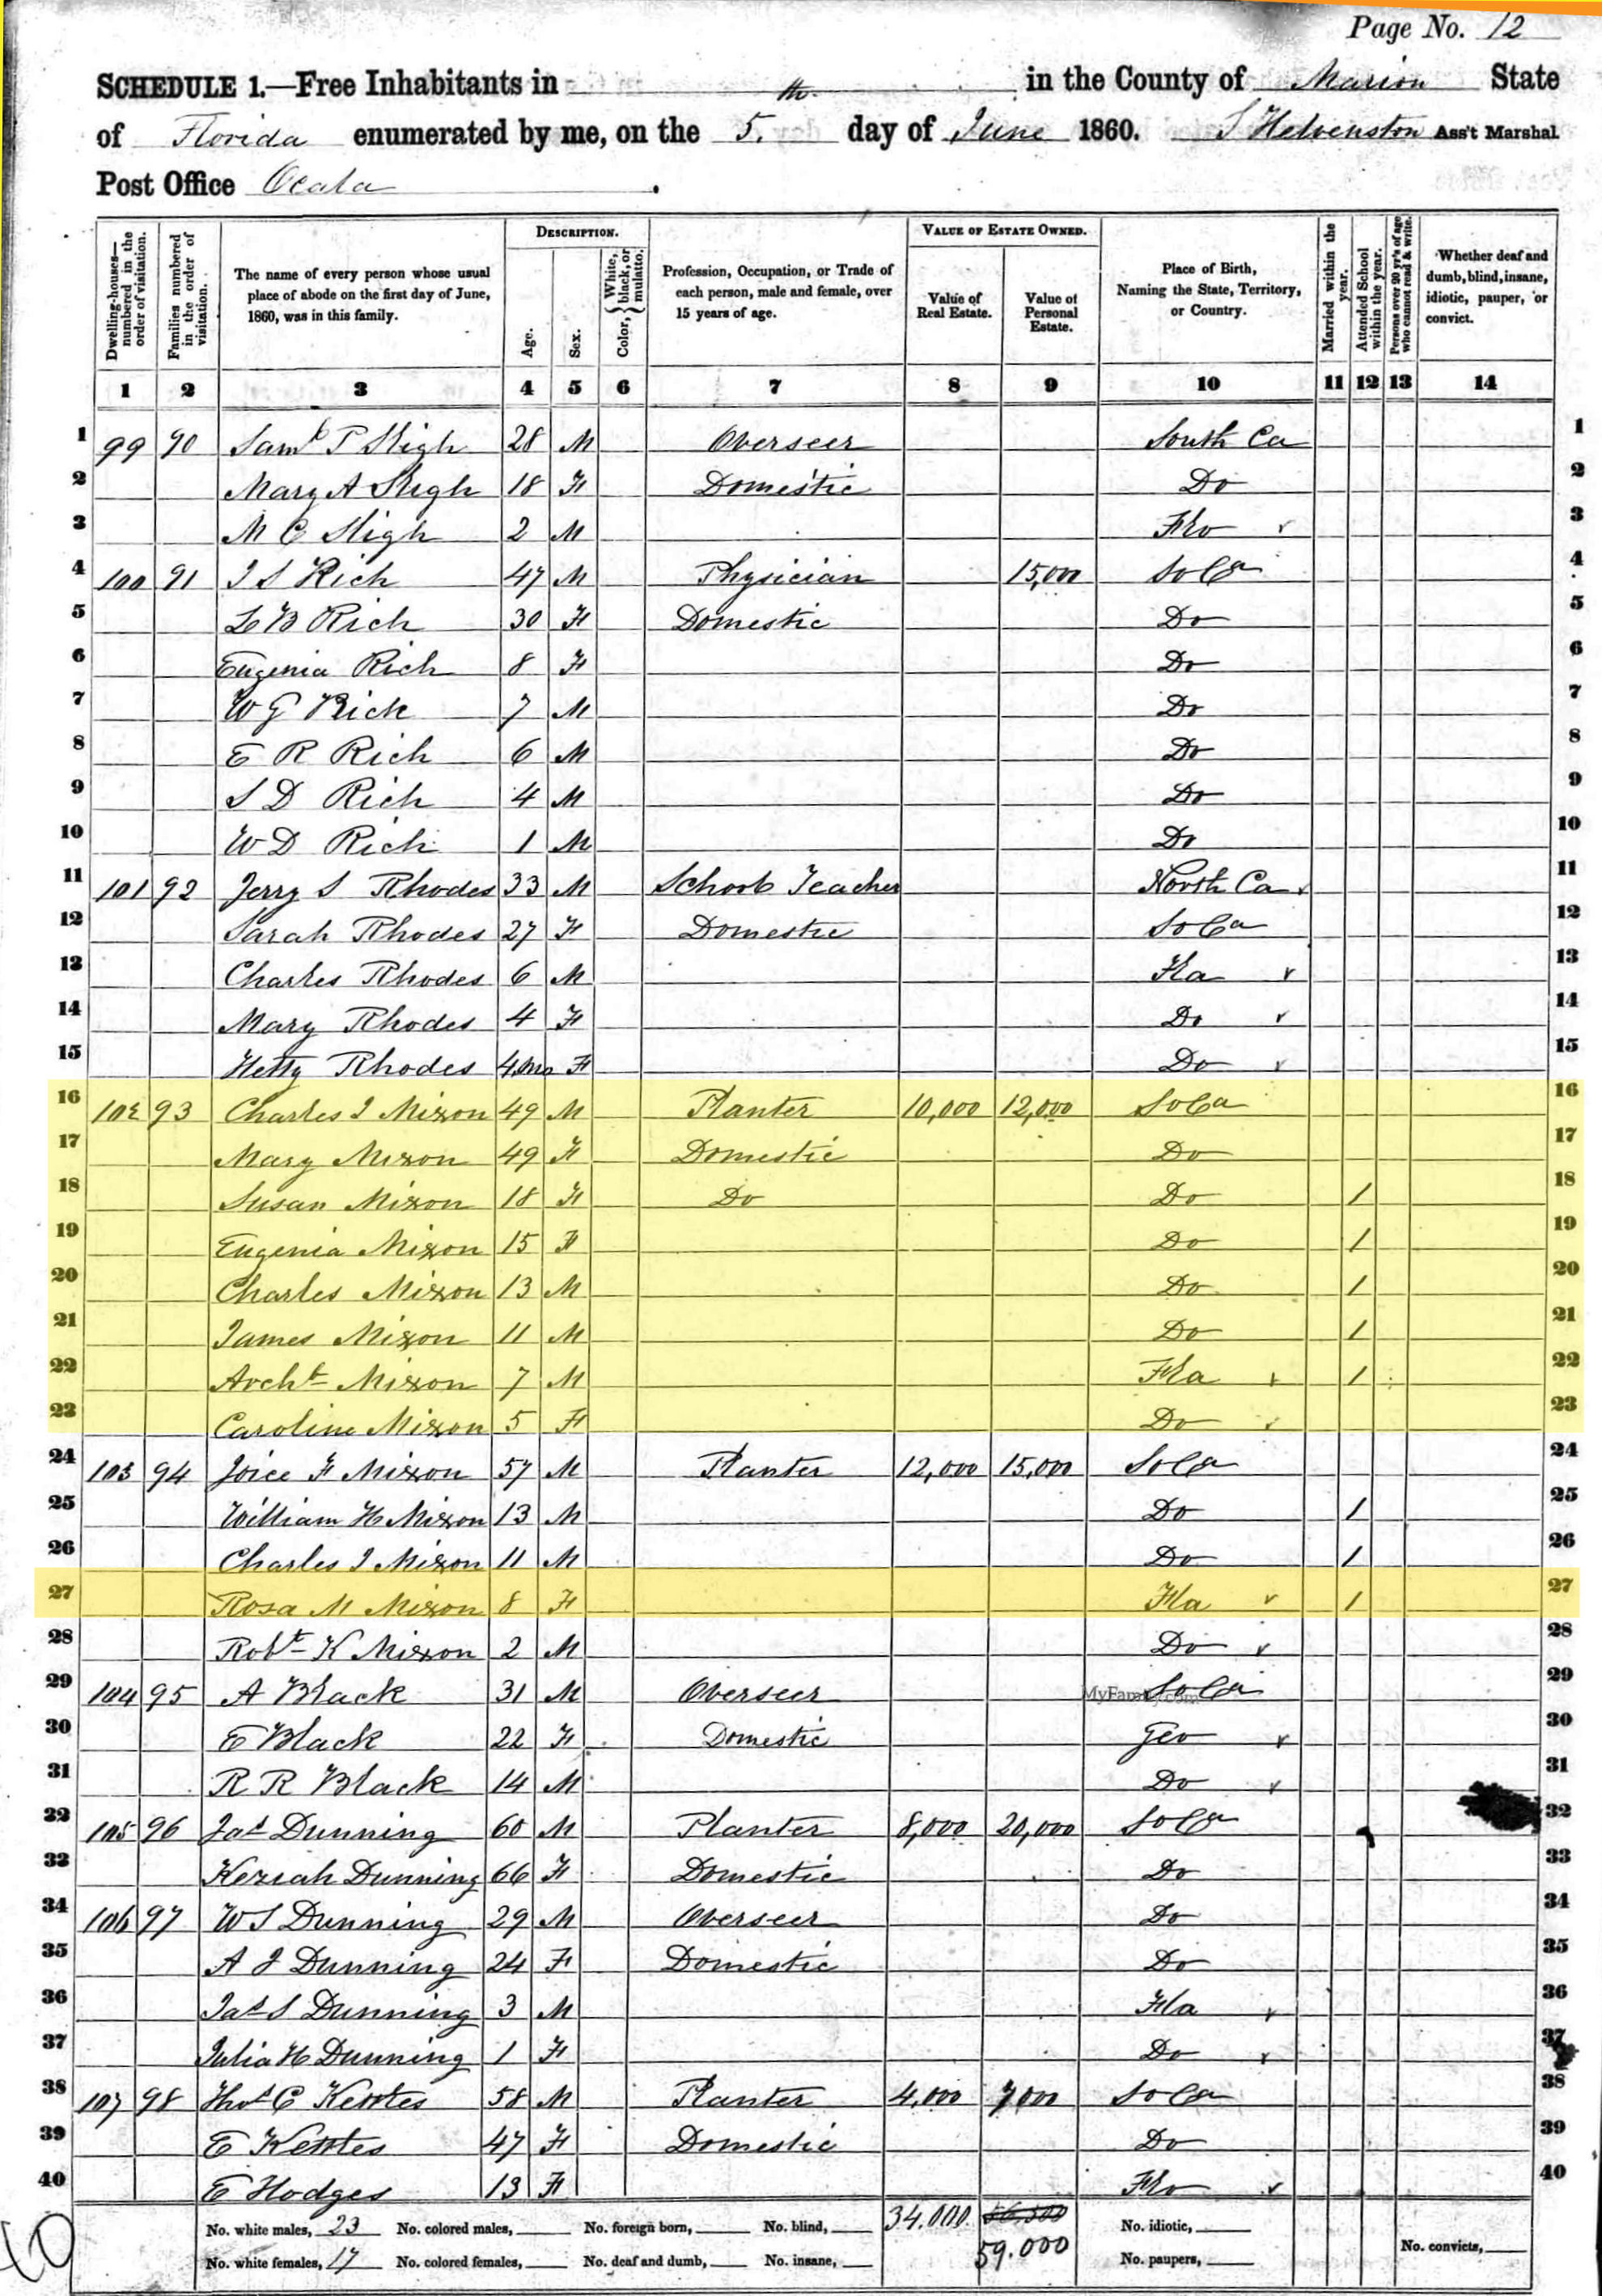 Page No. 12
SCHEDULE 1.—Free Inhabitants in in the County of Marion State
of Florida enumerated by me, on the 5. day of June 1860. S Helvenston Ass't Marshal
Post Office Ocala
Dwelling-houses—numbered in the order of visitation. Families numbered in the order of visitation. The name of every person whose usual place of abode on the first day of June, 1860, was in this family. DESCRIPTION. Age. Sex. Color, White, black, or mulatto. Profession, Occupation, or Trade of each person, male and female, over 15 years of age. VALUE OF ESTATE OWNED. Value of Real Estate. Value of Personal Estate. Place of Birth, Naming the State, Territory, or Country. Married within the year. Attended School within the year. Persons over 20 y'rs of age who cannot read & write. Whether deaf and dumb, blind, insane, idiotic, pauper, or convict.
1 2 3 4 5 6 7 8 9 10 11 12 13 14
1 99 90 Saml P Sligh 28 M Overseer South Ca 1
2 Mary A Sligh 18 F Domestic Do 2
3 M C Sligh 2 M Flo 3
4 100 91 J S Rich 47 M Physician 15,000 So Ca 4
5 L B Rich 30 F Domestic Do 5
6 Eugenia Rich 8 F Do 6
7 W G Rich 7 M Do 7
8 E R Rich 6 M Do 8
9 S D Rich 4 M Do 9
10 W D Rich 1 M Do 10
11 101 92 Jerry S Rhodes 33 M School Teacher North Ca 11
12 Sarah Rhodes 27 F Domestic So Ca 12
13 Charles Rhodes 6 M Fla 13
14 Mary Rhodes 4 F Do 14
15 Hetty Rhodes 4mo F Do 15
16 102 93 Charles J Mixon 49 M Planter 10,000 12,000 So Ca 16
17 Mary Mixon 49 F Domestic Do 17
18 Susan Mixon 18 F Do Do 1 18
19 Eugenia Mixon 15 F Do 1 19
20 Charles Mixon 13 M Do 1 20
21 James Mixon 11 M Do 1 21
22 Archt Mixon 7 M Fla 1 22
23 Caroline Mixon 5 F Do 23
24 103 94 Joice F Mixon 57 M Planter 12,000 15,000 So Ca 24
25 William H Mixon 13 M Do 1 25
26 Charles J Mixon 11 M Do 1 26
27 Rosa M Mixon 8 F Fla 1 27
28 Robt K Mixon 2 M Do 28
29 104 95 A Black 31 M Overseer So Ca 29
MyFamily.com
30 E Black 22 F Domestic Geo 30
31 R R Black 14 M Do 31
32 105 96 Jas Dunning 60 M Planter 8,000 20,000 So Ca 32
33 Keziah Dunning 66 F Domestic Do 33
34 106 97 W S Dunning 29 M Overseer Do 34
35 A J Dunning 24 F Domestic Do 35
36 Jas S Dunning 3 M Fla 36
37 Julia H Dunning 1 F Do 37
38 107 98 Thos C 58 M Planter 4,000 7000 So Ca 38
39 E 47 F Domestic Do 39
40 E Hodges 13 F Flo 40
No. white males, 23 No. colored males, No. foreign born, No. blind, 34.000. 56,500 No. idiotic,
No. white females, 17 No. colored females, No. deaf and dumb, No. insane, 59.000 No. paupers, No. convicts,
40